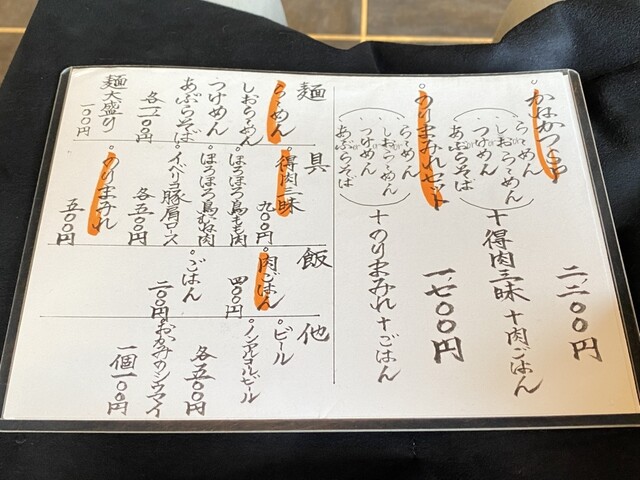 らーめん
しおらーめん
つけめん
あぶらそば
＋得肉三昧＋肉ごはん
二二〇〇円
のりまみれセット
らーめん
しおらーめん
つけめん
あぶらそば
＋のりまみれ＋ごはん
一七〇〇円
麺
らーめん
しおらーめん
つけめん
あぶらそば
麺大盛り
一〇〇円
具
得肉三昧
九〇〇円
ほろほろ鳥もも肉
ほろほろ鳥むね肉
イベリコ豚肩ロース
各五〇〇円
のりまみれ
五〇〇円
飯
肉ごはん
四〇〇円
ごはん
二〇〇円
他
ビール
ノンアルコールビール
各五〇〇円
おかみのシウマイ
一個一〇〇円